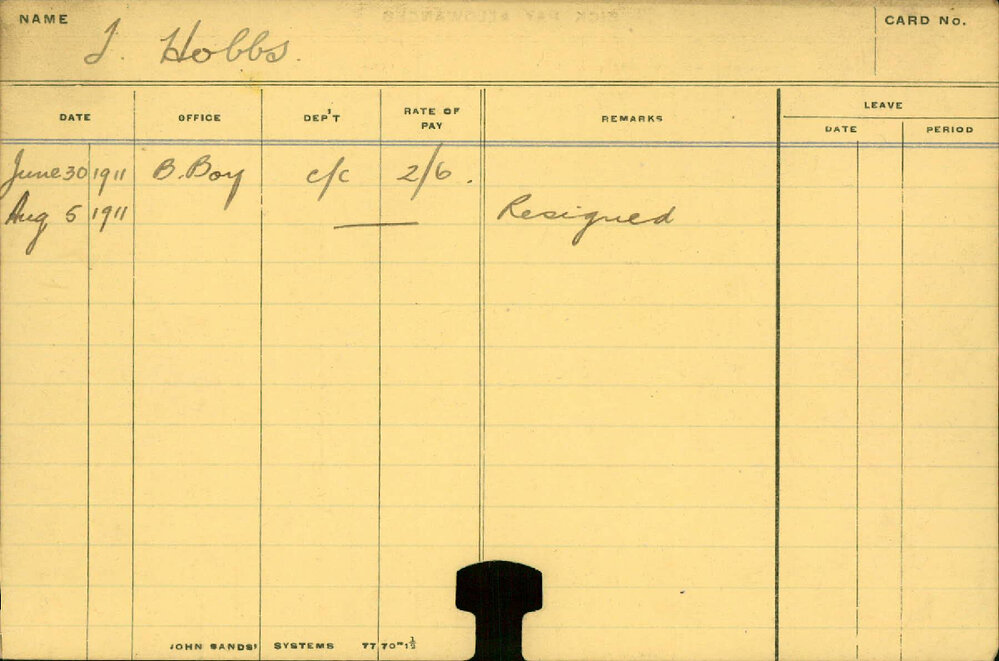 NAME J. Hobbs. CARD No.
DATE OFFICE DEP'T RATE OF PAY REMARKS LEAVE
DATE PERIOD
June 30 1911 B. Boy c/c 2/6.
Aug 5 1911 — Resigned
JOHN SANDS' SYSTEMS